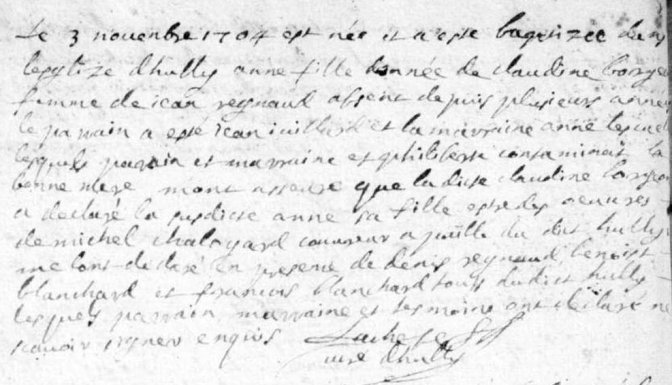 Le 3 novembre 1704 est née et a este baptizee dans
leglize dhully anne fille donnée de claudine
femme de jean reynaud absent depuis plusieurs anne
le parrain a esté jean et la marraine anne
lesquels parain et marraine et philiberte contaminat la
bonne mere mont asseuré que ladicte claudine
a declaré la susdicte anne sa fille estre des oeuvres
de michel chalogard couvreur a paille du dit hully
me lont declaré en presence de denis reynaud benoist
blanchard et francois blanchard tous dudict hully
lesquels parrain marraine et tesmoins ont declaré ne
scavoir signer enquis
curé dhully